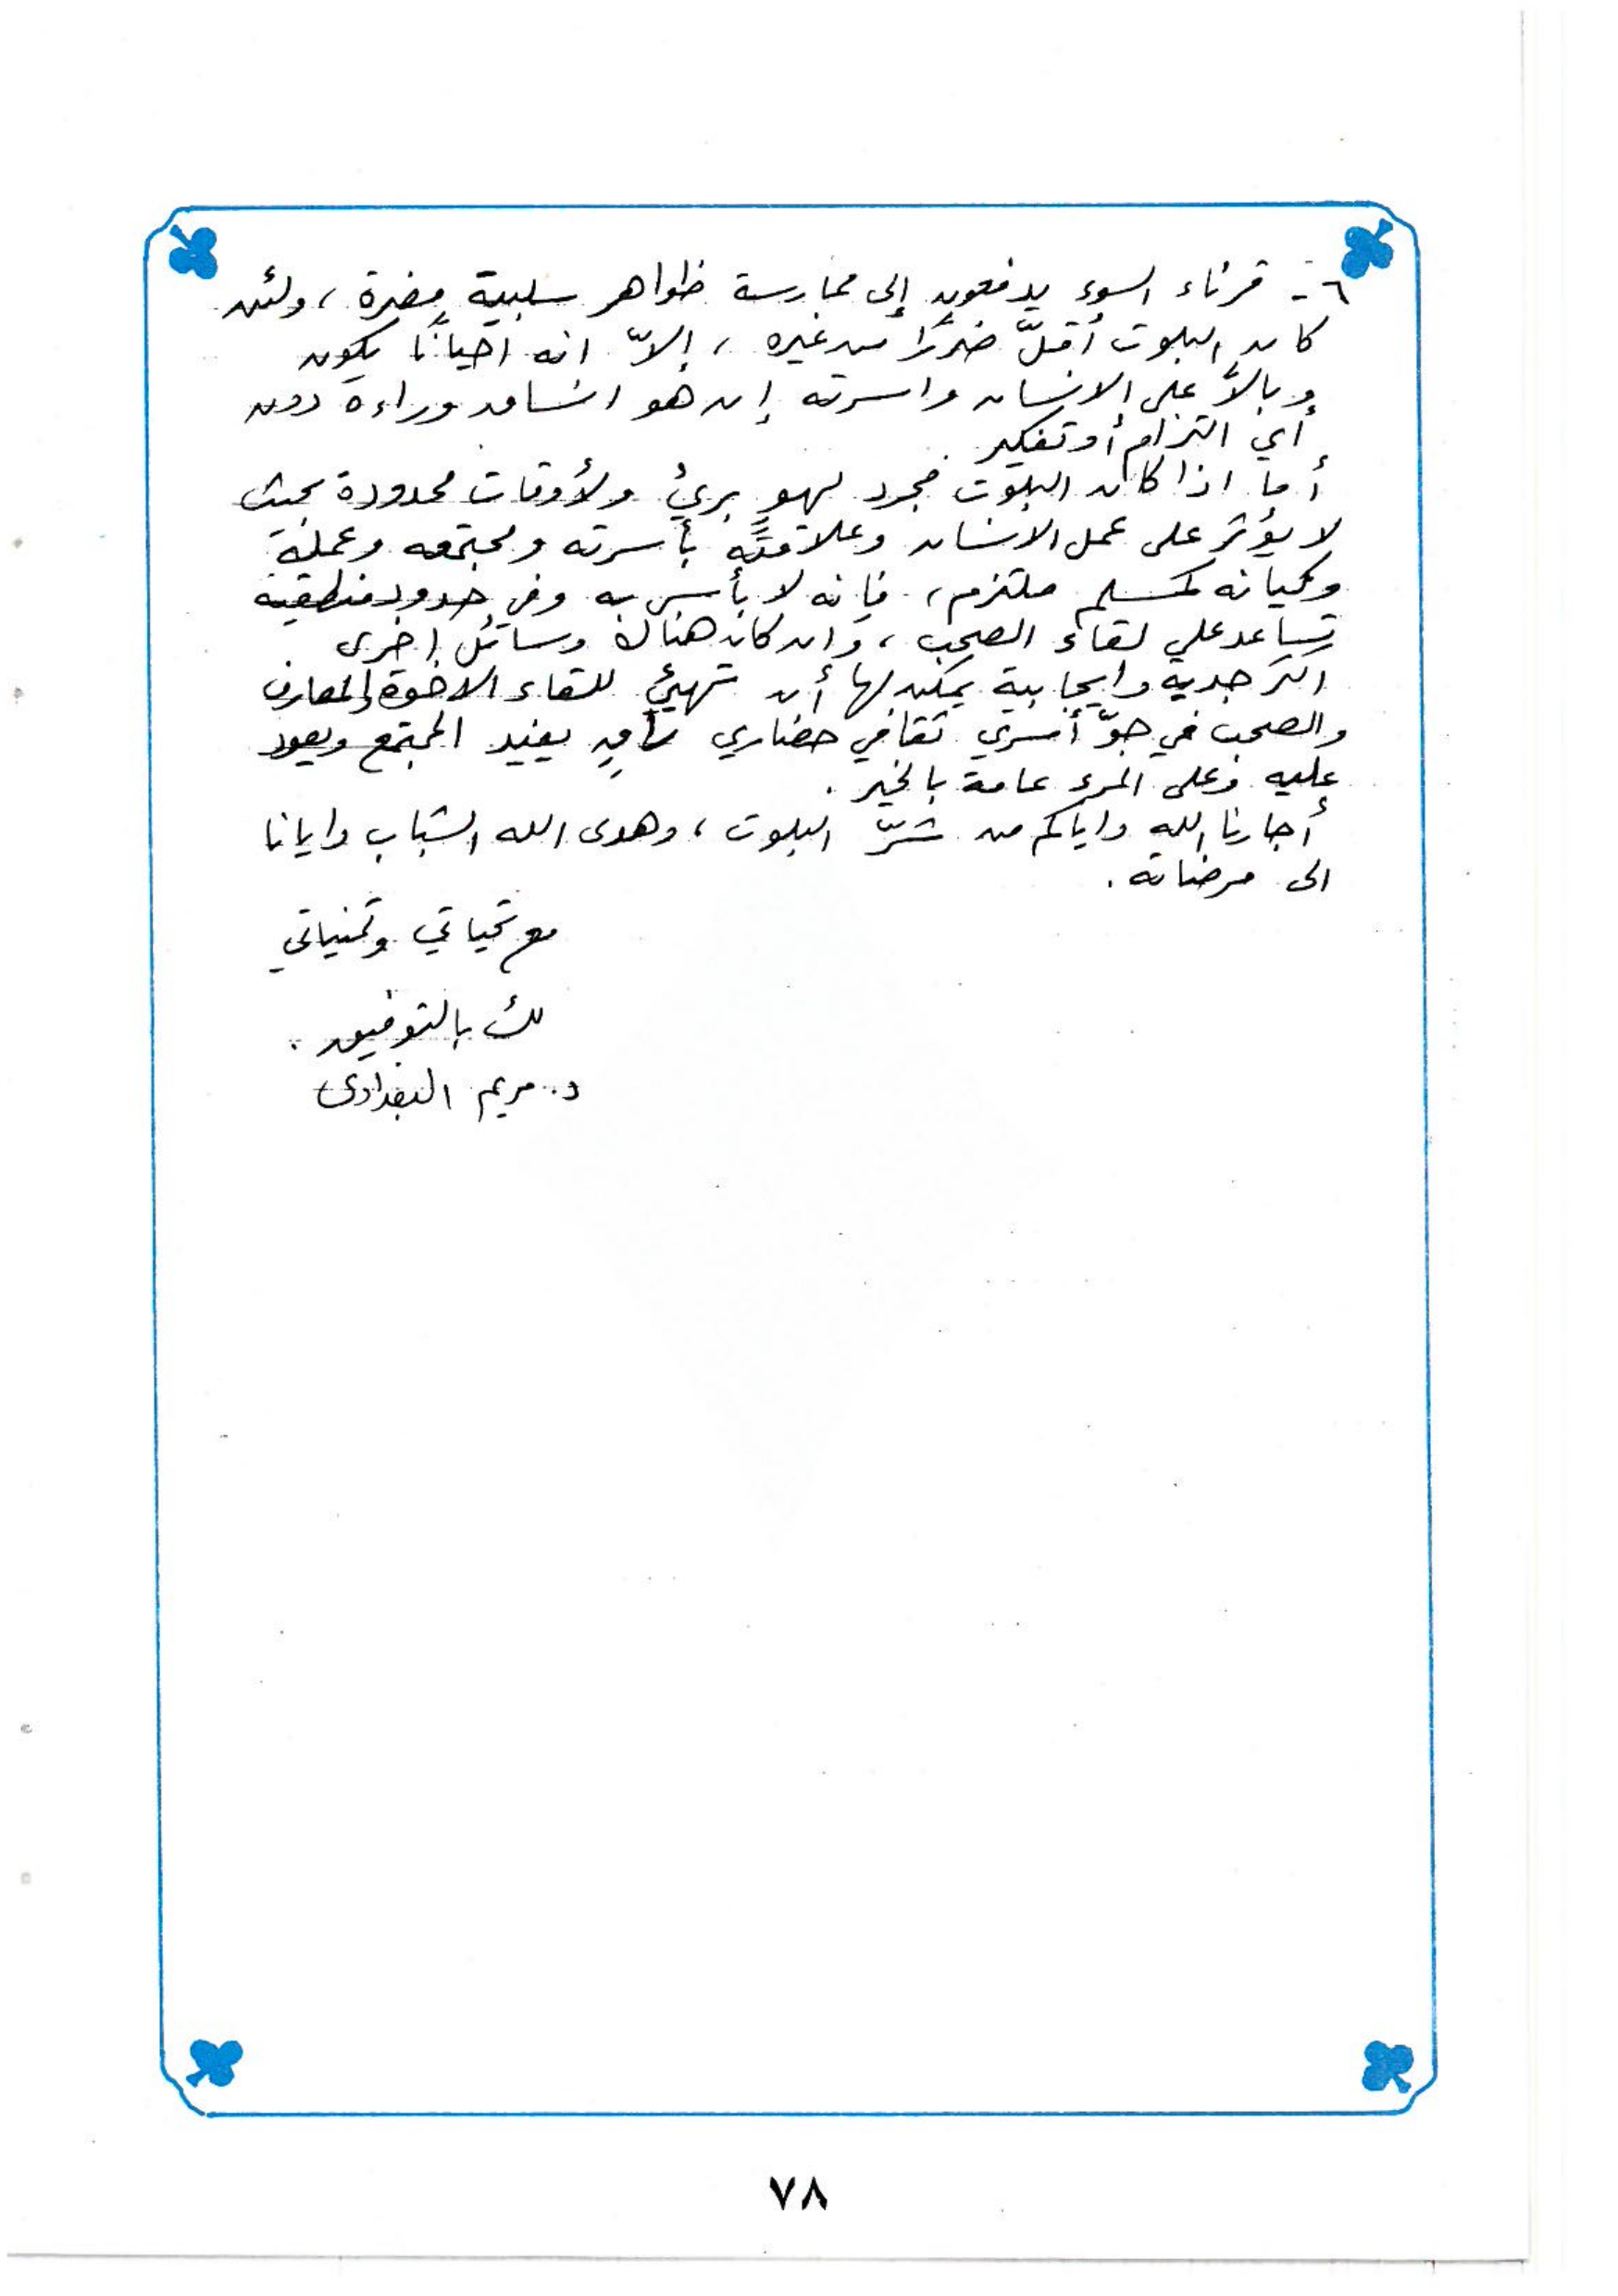 ٦- قرناء السوء يدفعون إلى ممارسة ظواهر سلبية مضرة ، ولئن
كان البلوت أقلّ ضررًا من غيره ، إلاّ انه احيانًا يكون
وبالاً على الانسان واسرته إن هو انساق وراءه دون
أي التزام أو تفكير
أما اذا كان البلوت مجرد لهو بريئ ولأوقات محدودة بحيث
لا يؤثر على عمل الانسان وعلاقته بأسرته ومجتمعه وعمله
وكيانه كمسلم ملتزم ، فإنه لا بأس به وفي حدود منطقية
تساعد على لقاء الصحب ، وان كان هناك وسائل اخرى
اكثر جدية وايجابية يمكن لها أن تهيئ للقاء الاخوة والمعارف
والصحب في جوّ أسري ثقافي حضاري يفيد المجتمع ويعود
عليه وعلى المرء عامة بالخير .
أجارنا الله واياكم من شرّ البلوت ، وهدى الله الشباب وايانا
الى مرضاته .
مع تحياتي وتمنياتي
لك بالتوفيق .
د. مريم البغدادي
٧٨